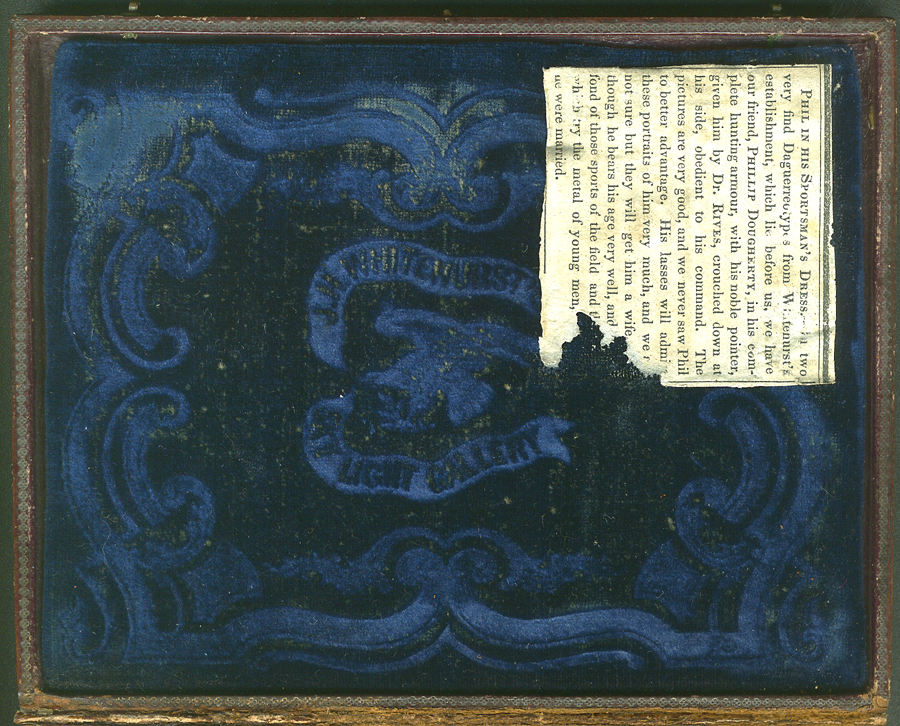 PHIL IN HIS SPORTSMAN'S DRESS. two
very find Daguerreotypes from Whitehurst's
establishment, which lie before us, we have
our friend, PHILLIP DOUGHERTY, in his com-
plete hunting armour, with his noble pointer,
given him by Dr. RIVES, crouched down at
his side, obedient to his command. The
pictures are very good, and we never saw Phil
to better advantage. His lasses will admi
these portraits of him very much, and we
not sure but they will get him a wife,
though he bears his age very well, and
fond of those sports of the field and
which try the metal of young men
he were married.
J.H. WHITEHURST
LIGHT GALLERY